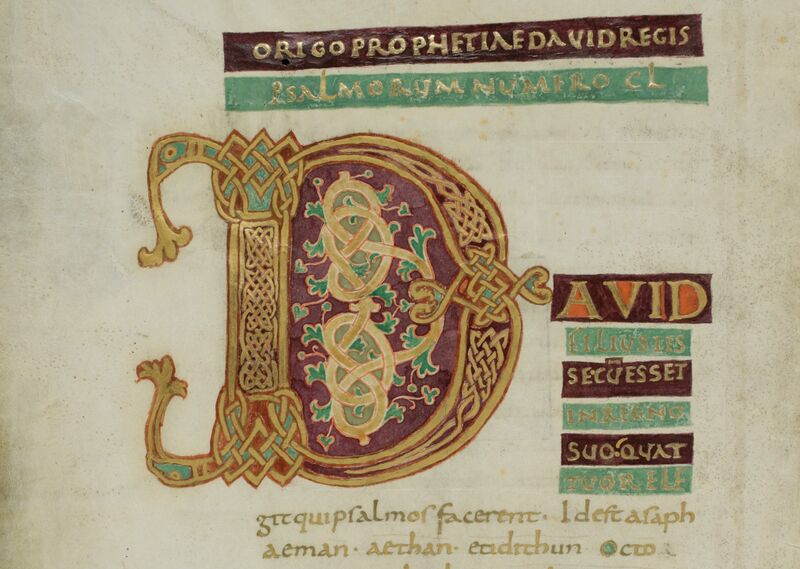 ORIGO PROPHETIAE DAVID REGIS
PSALMORUM NUMERO CL
DAVID
FILIUS IES
SE CUM ESSET
IN REGNO
SUO · QUAT
TUOR ELE
git qui psalmos facerent · Id est asaph
aeman · aethan · et idithun Octo